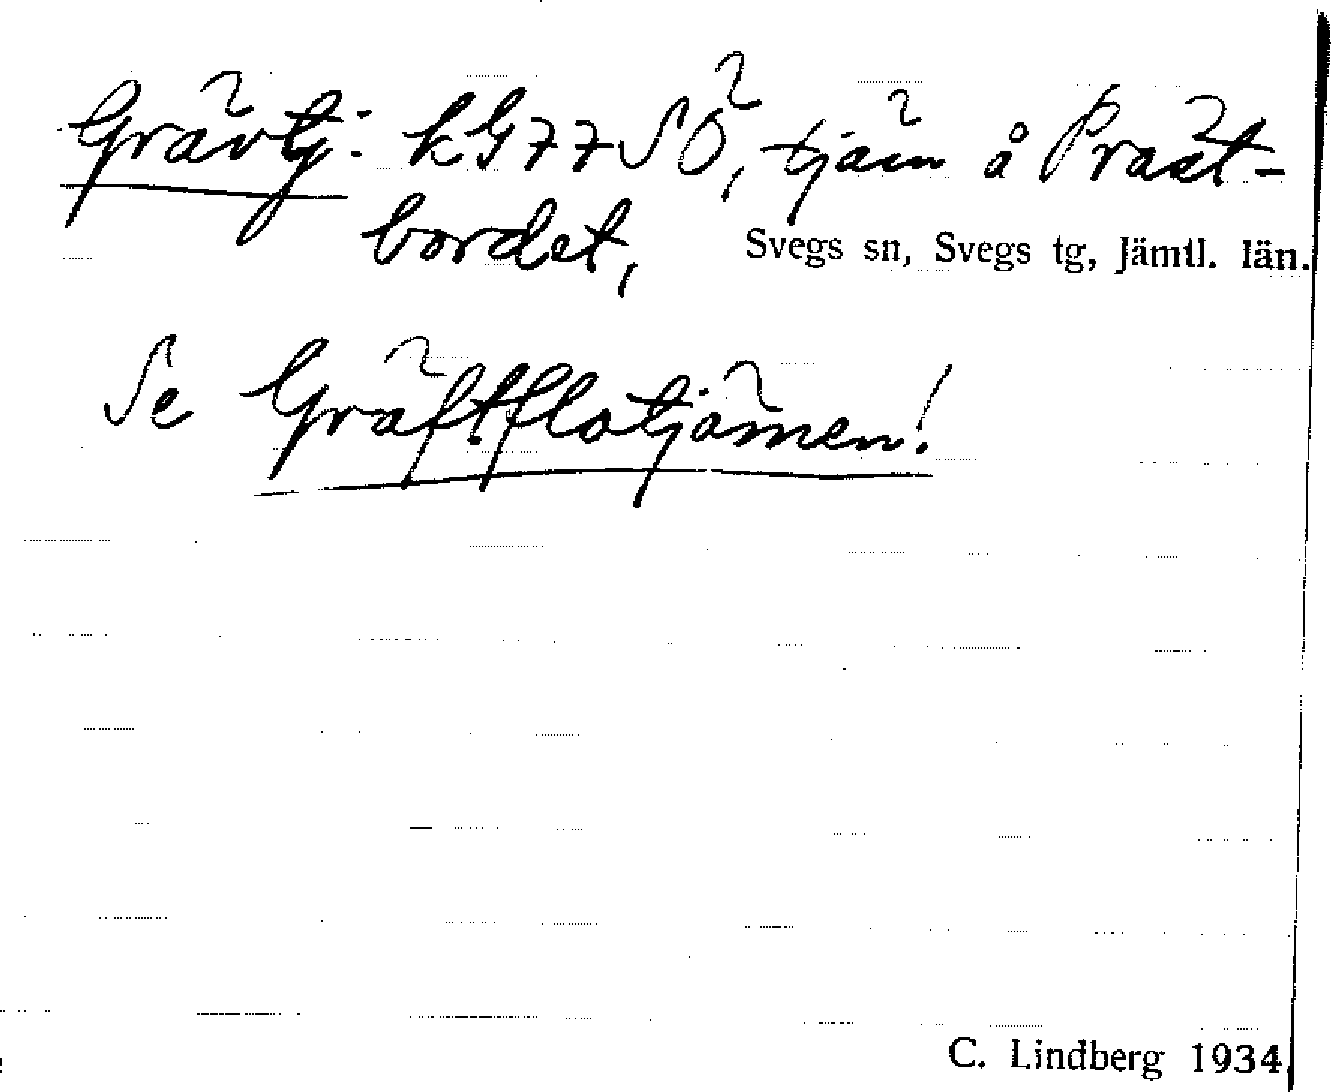 Grävtj: kG77SÖ, tjärn å Präst-
bordet, Svegs sn, Svegs tg, Jämtl. län.
Se Gräftflotjärnen!
C. Lindberg 1934